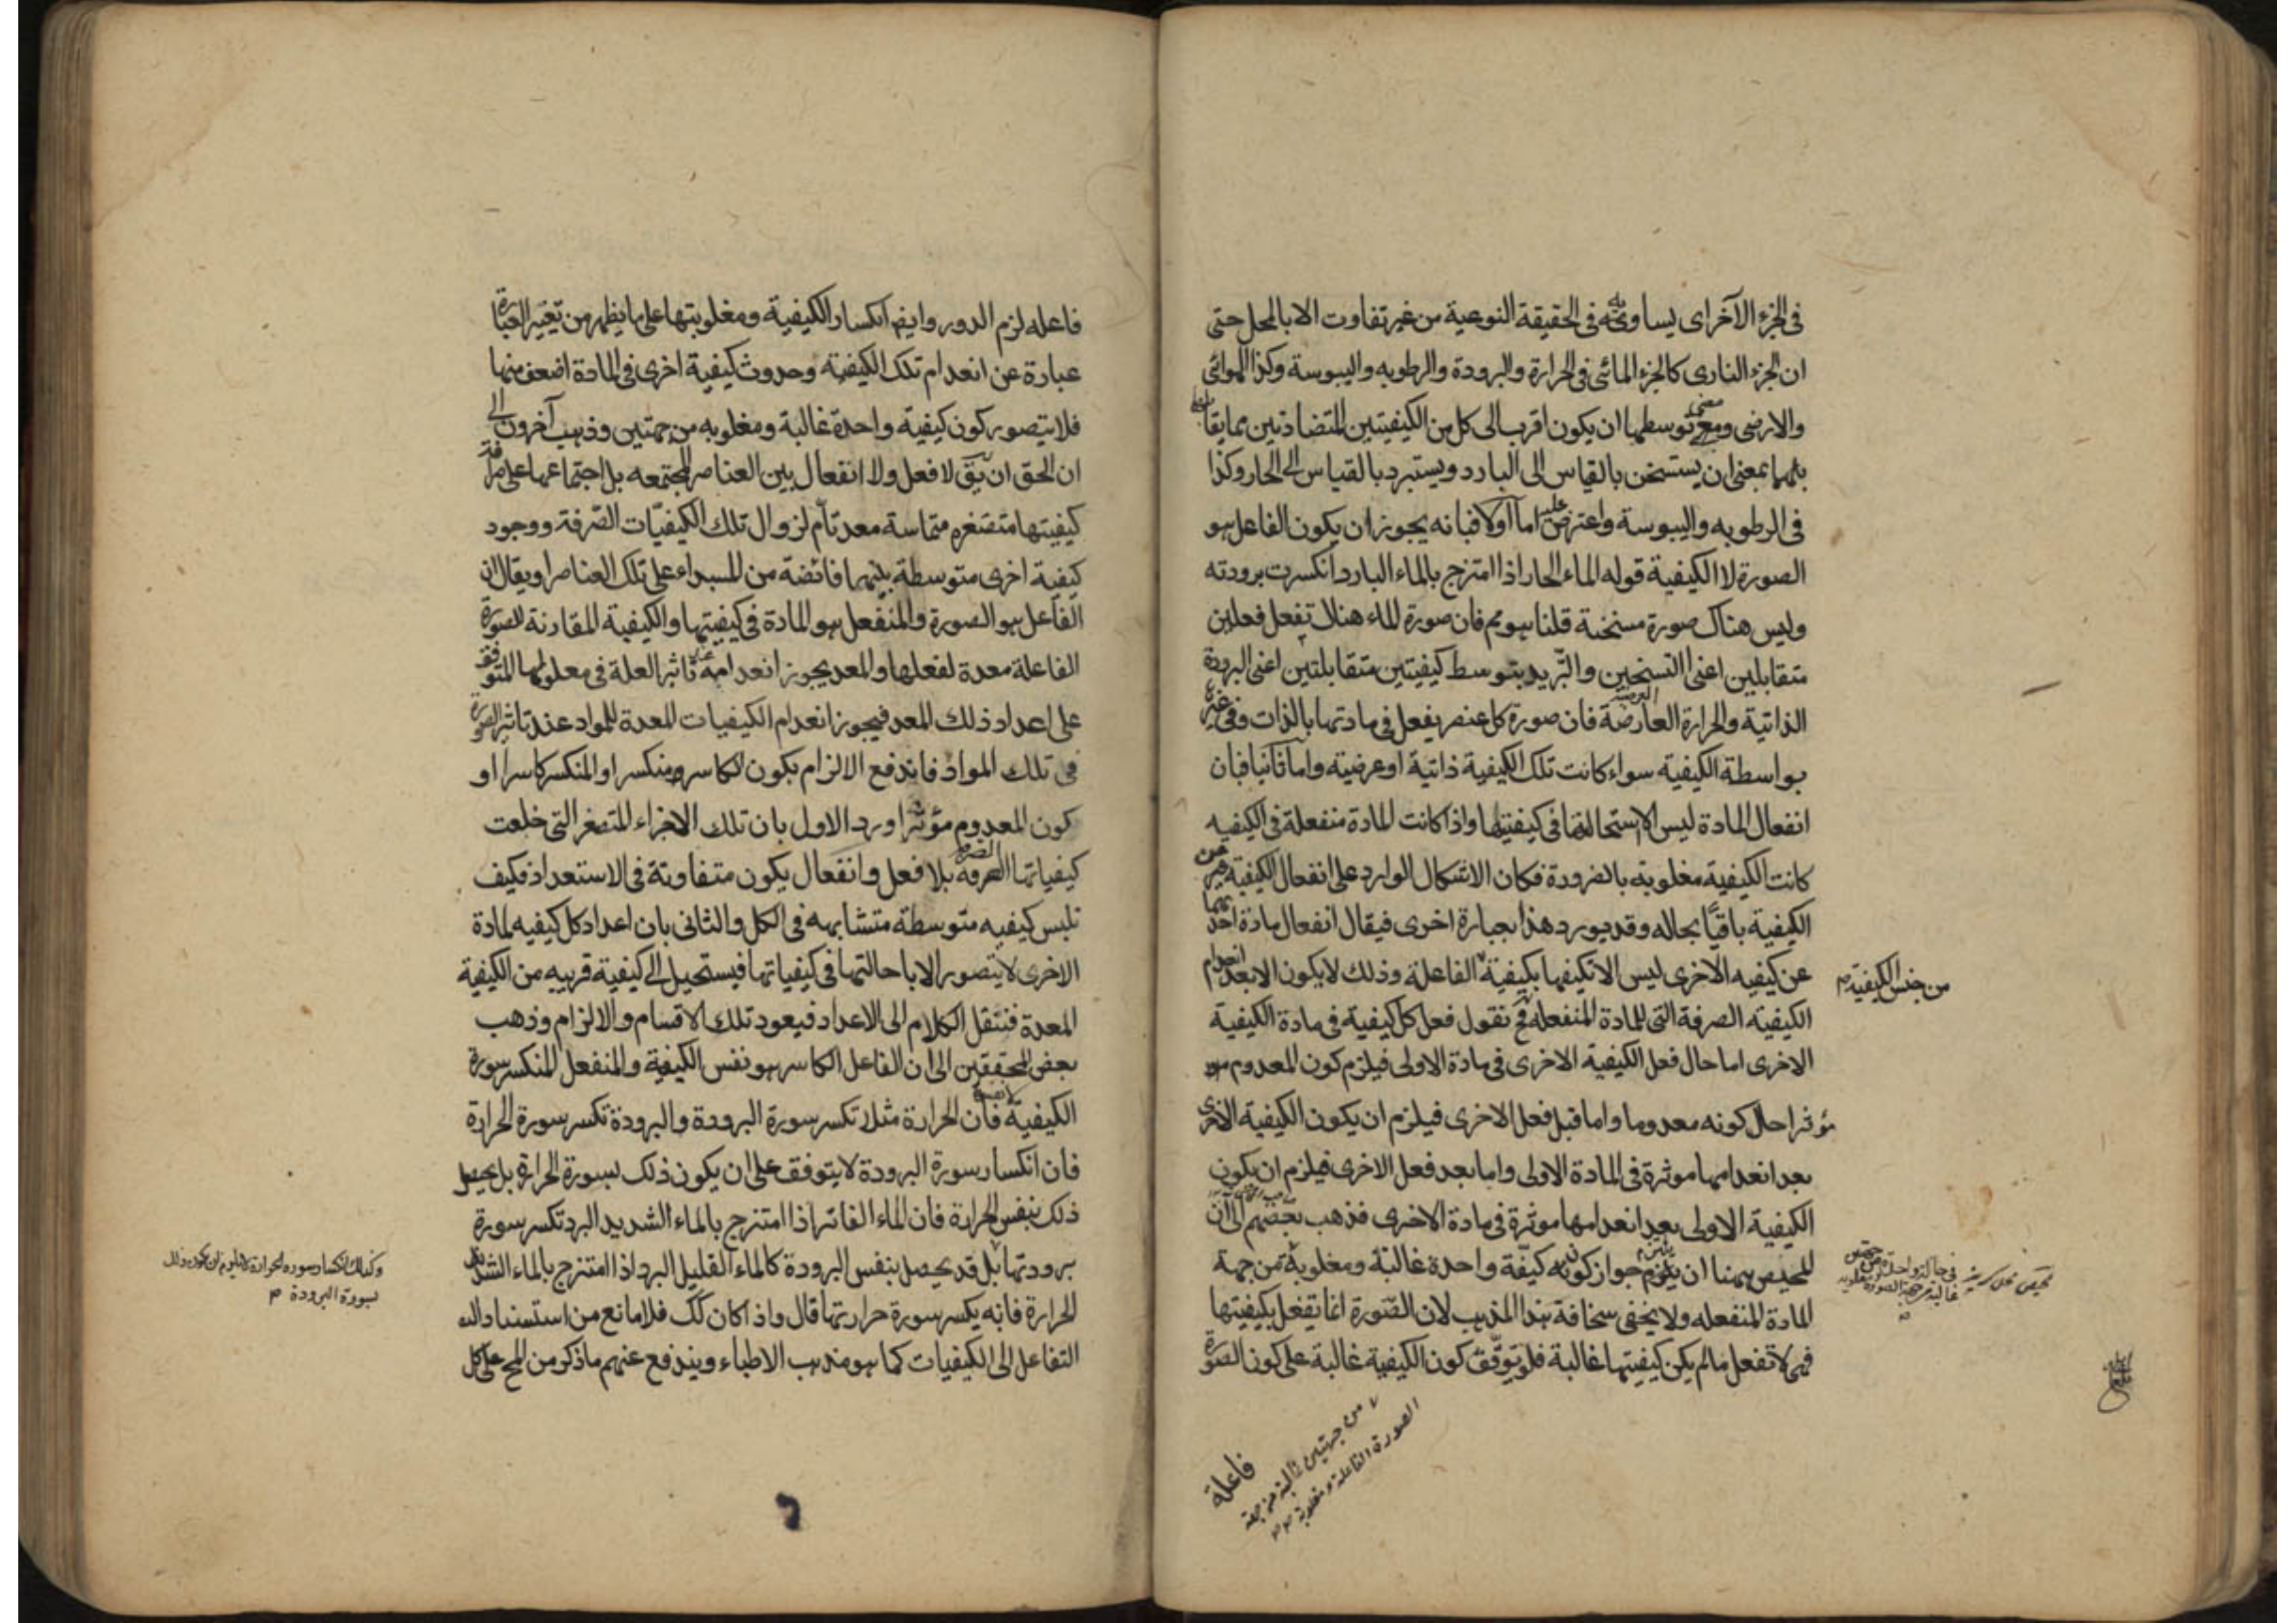 في الجزء الآخر اى يساويه في الحقيقة النوعية من غير تفاوت الا بالمحل حتى
ان الجزء النارى كالجزء المائى في الحرارة والبرودة والرطوبه واليبوسة وكذا الهوائى
والارضى ومعنى توسطها ان يكون اقرب الى كل من الكيفيتين المتضادتين مما يقابلها
بمعنى ان يستسخن بالقياس الى البارد ويستبرد بالقياس الى الحار وكذا
في الرطوبه واليبوسة واعترض عليه اما اولا فبانه يجوز ان يكون الفاعل هو
الصورة لا الكيفية قوله الماء الحار اذا امتزج بالماء البارد انكسرت برودته
وليس هناك صورة مسخنة قلنا هو مم فان صورة الماء هناك تفعل فعلين
متقابلين اعنى التسخين والتبريد بتوسط كيفيتين متقابلتين اعنى البرودة
الذاتية والحرارة العارضة فان صورة كل عنصر يفعل في مادتها بالذات وفي غيرها
بواسطة الكيفية سواء كانت تلك الكيفية ذاتية او عرضية واما ثانيا فبان
انفعال المادة ليس الا استحالتها في كيفيتها واذا كانت المادة منفعلة في الكيفيه
كانت الكيفية مغلوبه بالضرورة فكان الاشكال الوارد على انفعال الكيفية عن
الكيفية باقيا بحاله وقد يورد هذا بعبارة اخرى فيقال انفعال مادة احديهما
عن كيفيه الاخرى ليس الا تكيفها بكيفية الفاعلة وذلك لا يكون الا بعد انعدام
من جنس الكيفية م
الكيفيه الصرفة التى للمادة المنفعله فح نقول فعل كل كيفية في مادة الكيفية
الاخرى اما حال فعل الكيفية الاخرى في مادة الاولى فيلزم كون المعدوم
مؤثرا حال كونه معدوما واما قبل فعل الاخرى فيلزم ان يكون الكيفية الاخرى
بعد انعدامها موثرة في المادة الاولى واما بعد فعل الاخرى فيلزم ان يكون
الكيفية الاولى بعد انعدامها موثرة في مادة الاخرى فذهب بعضهم الى ان
المحيص ههنا ان يلتزم جواز كون كيفية واحدة غالبة ومغلوبة من جهة
المادة المنفعله ولا يخفى سخافة هذا المذهب لان الصورة انما تفعل بكيفيتها
فهى لا تفعل ما لم يكن كيفيتها غالبة فلو توقف كون الكيفية غالبة على كون الصورة
فاعلة
من جهتين غالبة من جهة
الصورة الفاعلة ومغلوبة
فاعله لزم الدور وايضا انكسار الكيفية ومغلوبتها على ما يظهر من تغيير العبارة
عبارة عن انعدام تلك الكيفية وحدوث كيفية اخرى في المادة اضعف منها
فلا يتصور كون كيفية واحدة غالبة ومغلوبه من جهتين وذهب آخرون الى
ان الحق ان يق لا فعل ولا انفعال بين العناصر المجتمعه بل اجتماعها على صرافة
كيفيتها متصغره متماسة معد تام لزوال تلك الكيفيات الصرفة ووجود
كيفية اخرى متوسطة بينهما فائضة من المبداء على تلك العناصر او يقال ان
الفاعل هو الصورة والمنفعل هو المادة في كيفيتها والكيفية المقارنة للصورة
الفاعلة معدة لفعلها والمعد يجوز انعدامه عند تاثير العلة في معلولها المتوقف
على اعداد ذلك المعد فيجوز انعدام الكيفيات المعدة للمواد عند تاثير الصورة
في تلك المواد فاندفع الالزام بكون الكاسر منكسرا والمنكسر كاسرا او
كون المعدوم مؤثرا ورد الاول بان تلك الاجزاء المتصغر التى خلعت
كيفياتها الصرفه بلا فعل وانفعال يكون متفاوتة في الاستعداد فكيف
تلبس كيفيه متوسطة متشابهه في الكل والثانى بان اعداد كل كيفيه لمادة
الاخرى لا يتصور الا باحالتها في كيفياتها فيستحيل الى كيفية قريبه من الكيفية
المعدة فننقل الكلام الى الاعداد فيعود تلك الاقسام والالزام وذهب
بعض المحققين الى ان الفاعل الكاسر هو نفس الكيفية والمنفعل المنكسر سورة
الكيفية فان الحرارة مثلا تكسر سورة البرودة والبرودة تكسر سورة الحرارة
فان انكسار سورة البرودة لا يتوقف على ان يكون ذلك بسورة الحرارة بل يحصل
ذلك بنفس الحرارة فان الماء الفاتر اذا امتزج بالماء الشديد البرد تكسر سورة
برودتها بل قد يحصل بنفس البرودة كالماء القليل البرد اذا امتزج بالماء الشديد
وكذلك انكسار سوره الحرارة لا يلزم ان يكون ذلك
بسورة البرودة م
الحرارة فانه يكسر سورة حرارتها قال واذا كان كك فلا مانع من استناد
التفاعل الى الكيفيات كما هو مذهب الاطباء ويندفع عنهم ما ذكر من المح على كل